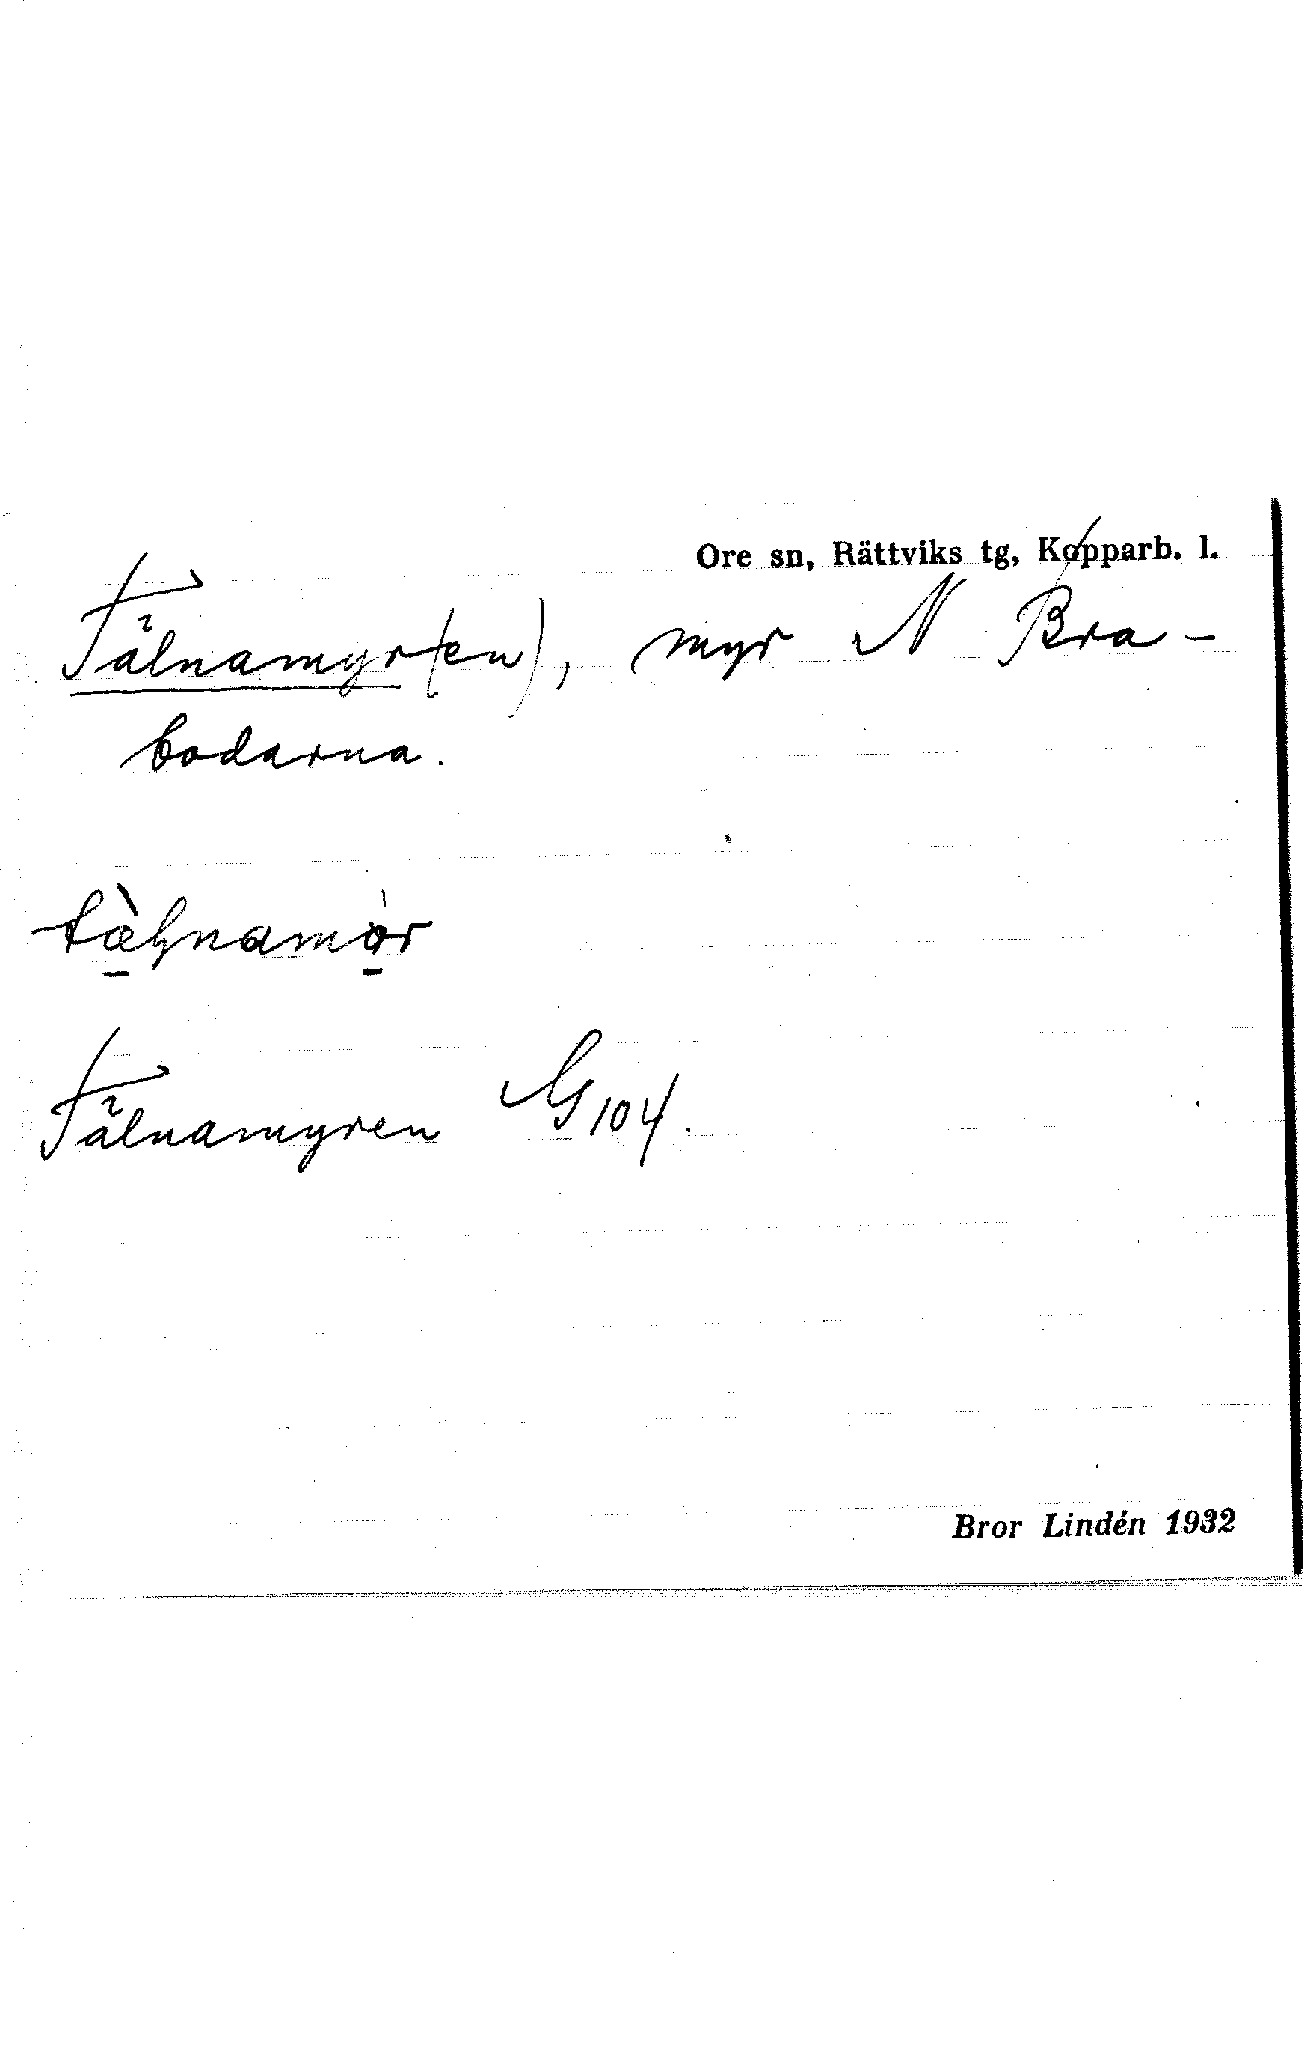 Ore sn, Rättviks tg, Kopparb. l.
Tälnamyr(en), myr N Bra-
bodarna.
Tälnamyren G104.
Bror Lindén 1932